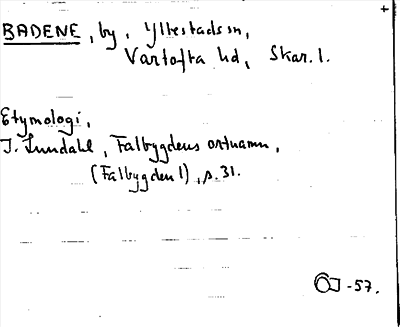 BADENE, by, Yllestads sn,
Vartofta hd, Skar. l.
Etymologi,
I. Lundahl, Falbygdens ortnamn,
(Falbygden 1), s. 31.
-57.